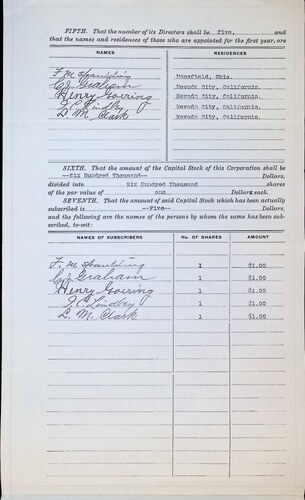 FIFTH. That the number of its Directors shall be five, and
that the names and residences of those who are appointed for the first year, are
NAMES RESIDENCES
F. M. Spaulding Mansfield, Ohio.
C. J. Graham Nevada City, California.
Henry Goering Nevada City, California.
F. C. Lindley Nevada City, California.
L. M. Clark Nevada City, California.
SIXTH. That the amount of the Capital Stock of this Corporation shall be
--Six Hundred Thousand-- Dollars,
divided into Six Hundred Thousand shares
of the par value of one Dollars each.
SEVENTH. That the amount of said Capital Stock which has been actually
subscribed is --Five-- Dollars
and the following are the names of the persons by whom the same has been sub-
scribed, to-wit:
NAMES OF SUBSCRIBERS No. OF SHARES AMOUNT
F. M. Spaulding 1 $1.00
C. J. Graham 1 $1.00
Henry Goering 1 $1.00
F. C. Lindley 1 $1.00
L. M. Clark 1 $1.00